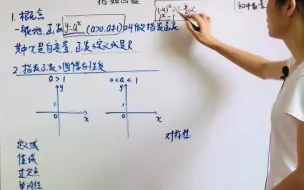 指数函数
1. 概念
一般地,函数 y=aˣ (a>0,a≠1) 叫做指数函数
其中x是自变量,函数的定义域是R
2. 指数函数的图像和性质
a>1
0<a<1
y
y
1
1
0
x
0
x
定义域
对称性
值域
过定点
单调性